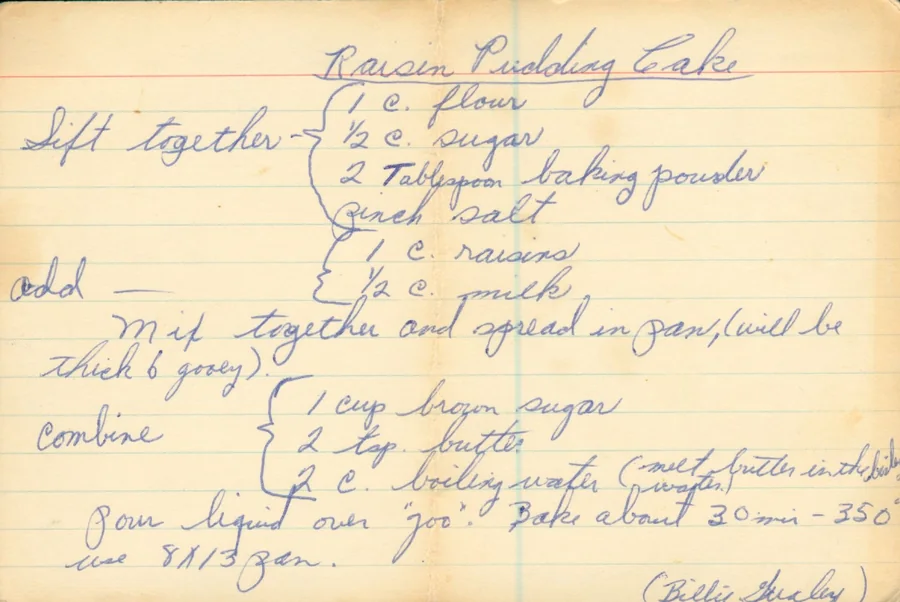 Raisin Pudding Cake
Sift together - 1 c. flour
1/2 c. sugar
2 Tablespoon baking powder
pinch salt
add — 1 c. raisins
1/2 c. milk
Mix together and spread in pan, (will be
thick & gooey).
combine 1 cup brown sugar
2 tsp. butter
2 c. boiling water (melt butter in the
water)
Pour liquid over "goo". Bake about 30 min - 350°
use 8X13 pan.
(Billie